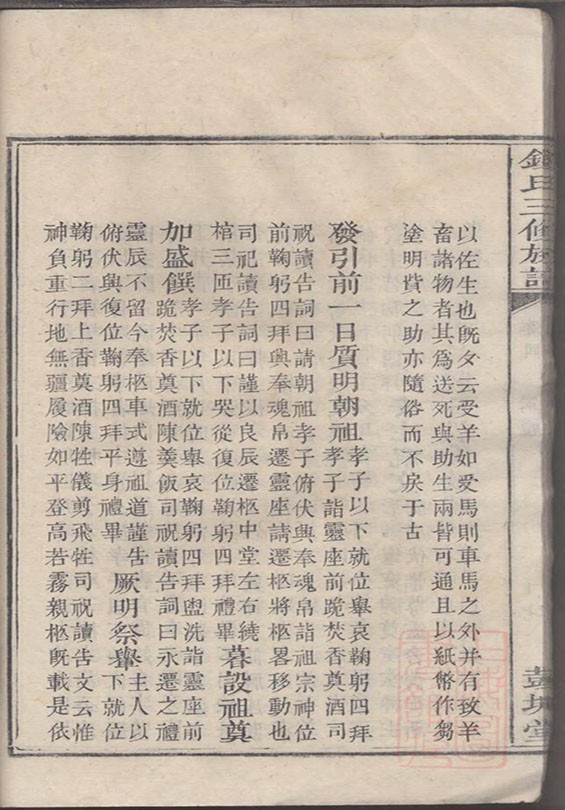 鍾氏三修族譜
彭城堂
以佐生也既夕云受羊如受馬則車馬之外并有致羊
畜諸物者其為送死與助生兩皆可通且以紙幣作芻
塗明貲之助亦隨俗而不戾于古
發引前一日質明朝祖孝子以下就位舉哀鞠躬四拜
孝子詣靈座前跪焚香奠酒司
祝讀告詞曰請朝祖孝子俯伏興奉魂帛詣祖宗神位
前鞠躬四拜興奉魂帛遷靈座請遷柩將柩畧移動也
司祀讀告詞曰謹以良辰遷柩中堂左右繞
棺三匝孝子以下哭從復位鞠躬四拜禮畢暮設祖奠
加盛饌孝子以下就位舉哀鞠躬四拜盥洗詣靈座前
跪焚香奠酒陳羹飯司祝讀告詞曰永遷之禮
靈辰不留今奉柩車式遵祖道謹告厥明祭轝主人以
俯伏興復位鞠躬四拜平身禮畢下就位
鞠躬二拜上香奠酒陳牲儀剪飛牲司祝讀告文云惟
神負重行地無疆履險如平登高若霧親柩既載是依